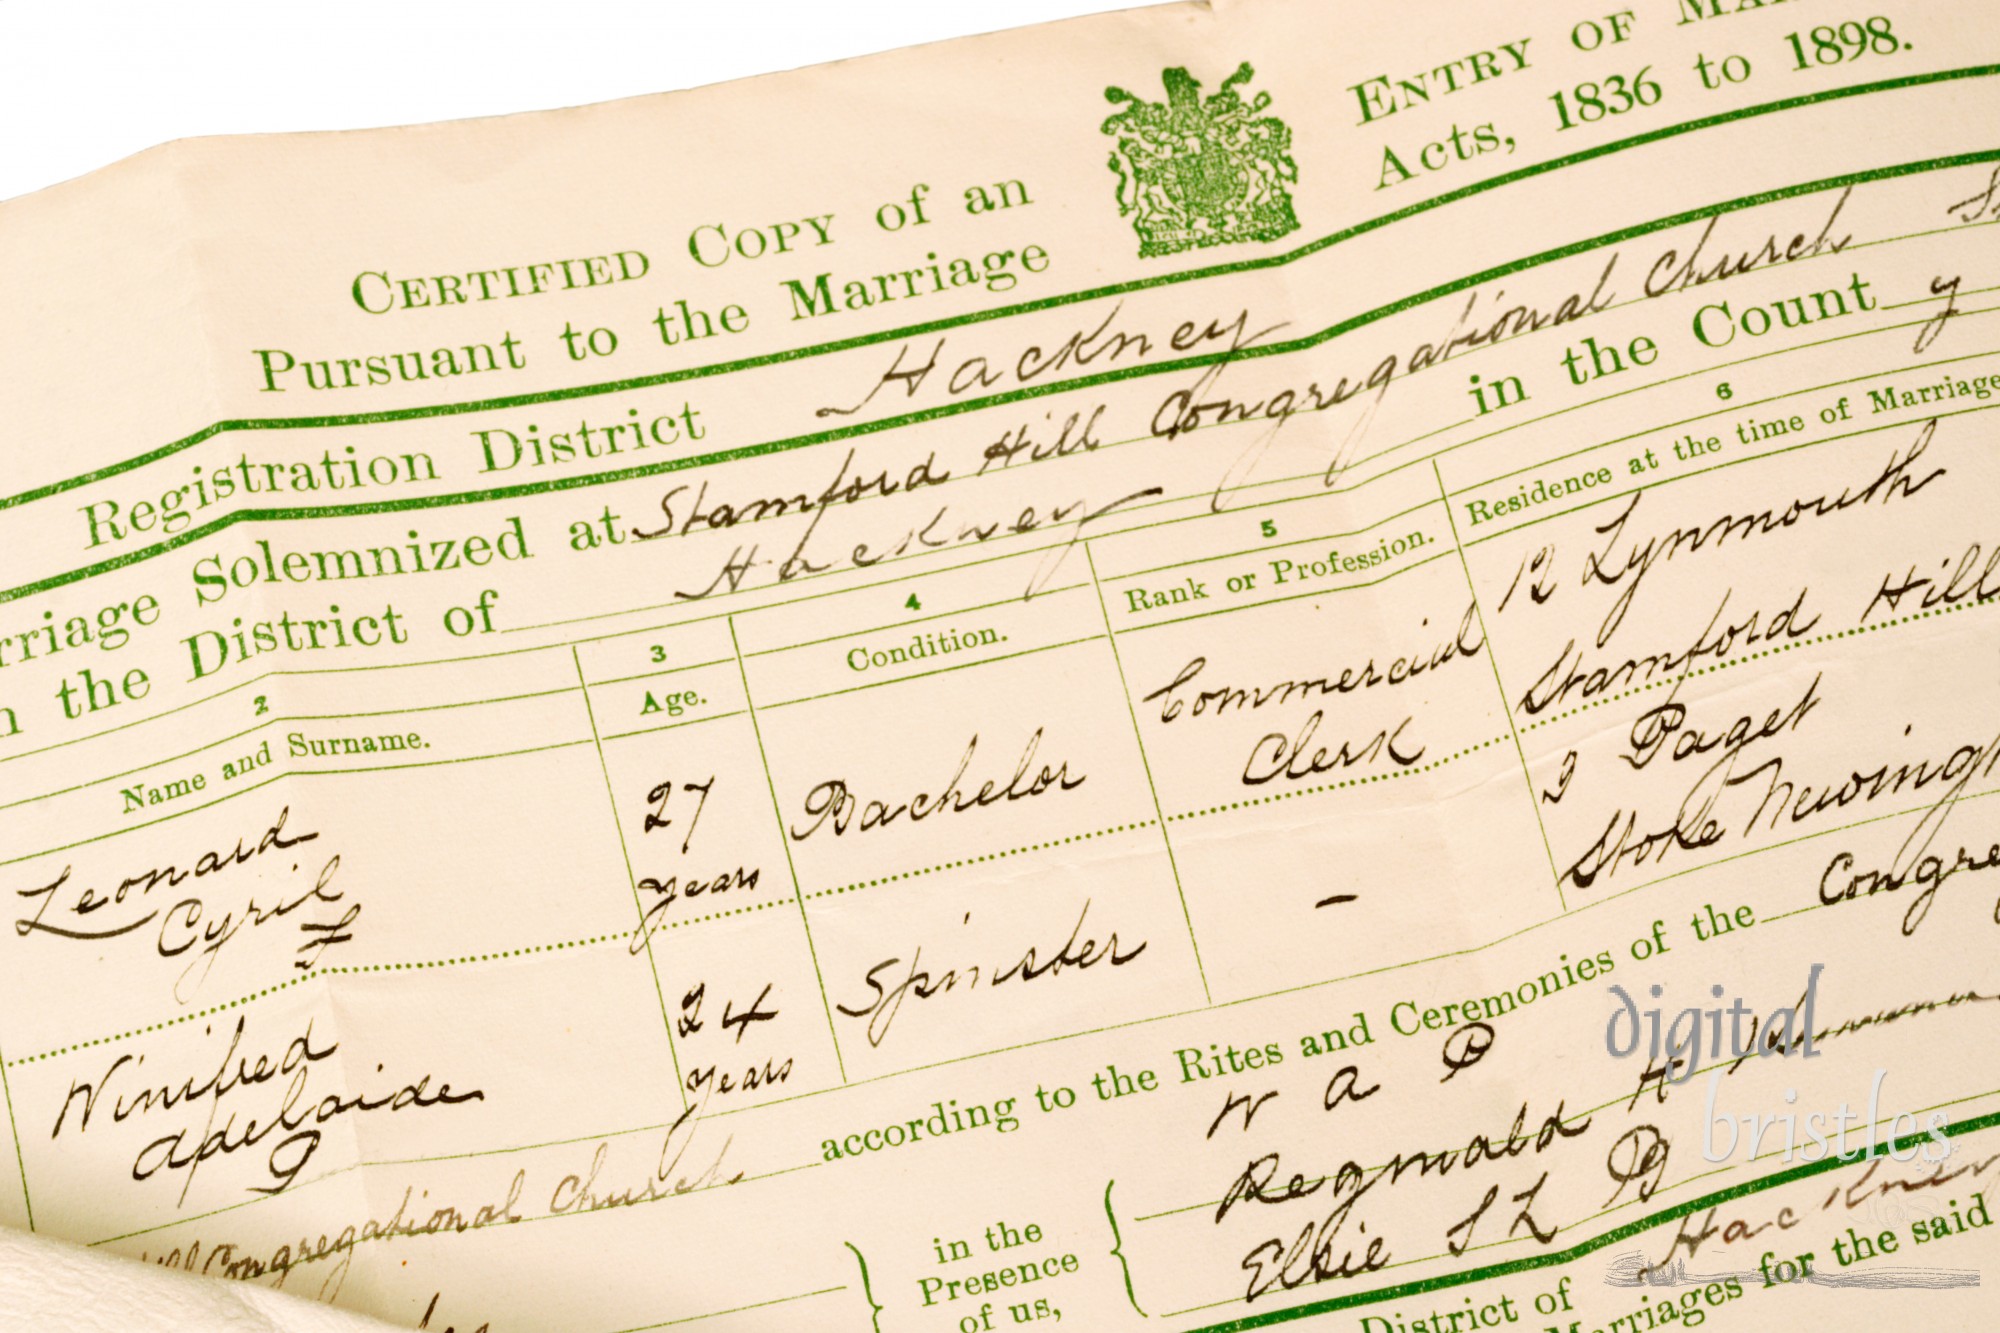 CERTIFIED COPY of an ENTRY OF
Pursuant to the Marriage Acts, 1836 to 1898.
Registration District Hackney
Solemnized at Stamford Hill Congregational Church
the District of Hackney in the County
2 3 4 5 6
Name and Surname. Age. Condition. Rank or Profession. Residence at the time of Marriage
Leonard Cyril F 27 years Bachelor Commercial Clerk 12 Lynmouth Stamford Hill
Winifred Adelaide P 24 years Spinster – 2 Paget Stoke
Congregational Church according to the Rites and Ceremonies of the
W A P
in the Presence of us,
Reginald H
Elsie S L P
District of Hackney
Marriages for the said
digital
bristles